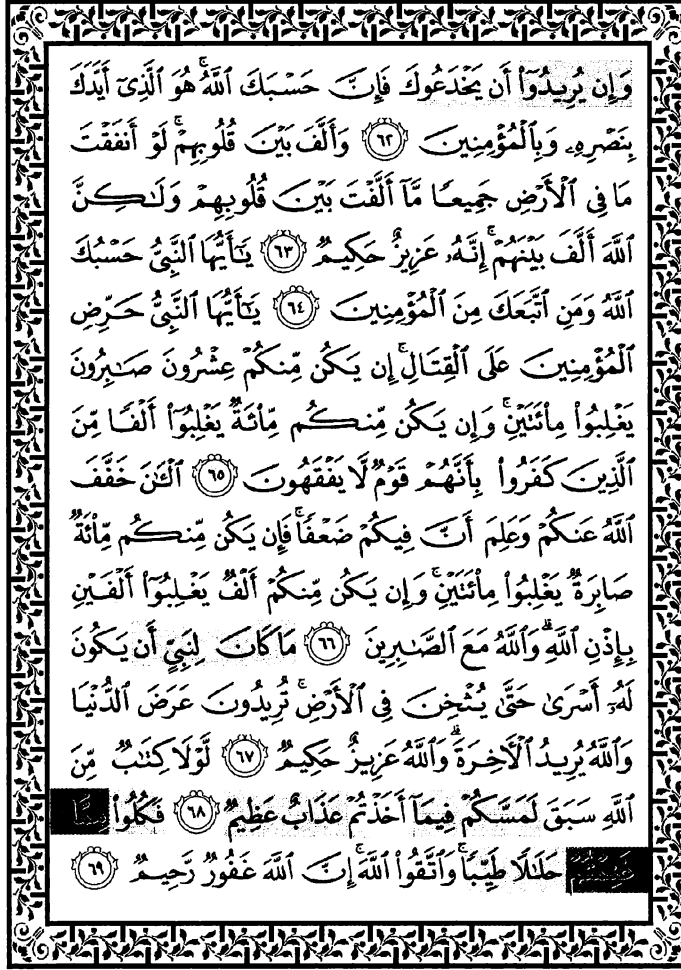 وَإِن يُرِيدُوٓا۟ أَن يَخْدَعُوكَ فَإِنَّ حَسْبَكَ ٱللَّهُ ۚ هُوَ ٱلَّذِىٓ أَيَّدَكَ
بِنَصْرِهِۦ وَبِٱلْمُؤْمِنِينَ ﴿٦٢﴾ وَأَلَّفَ بَيْنَ قُلُوبِهِمْ ۚ لَوْ أَنفَقْتَ
مَا فِى ٱلْأَرْضِ جَمِيعًا مَّآ أَلَّفْتَ بَيْنَ قُلُوبِهِمْ وَلَـٰكِنَّ
ٱللَّهَ أَلَّفَ بَيْنَهُمْ ۚ إِنَّهُۥ عَزِيزٌ حَكِيمٌ ﴿٦٣﴾ يَـٰٓأَيُّهَا ٱلنَّبِىُّ حَسْبُكَ
ٱللَّهُ وَمَنِ ٱتَّبَعَكَ مِنَ ٱلْمُؤْمِنِينَ ﴿٦٤﴾ يَـٰٓأَيُّهَا ٱلنَّبِىُّ حَرِّضِ
ٱلْمُؤْمِنِينَ عَلَى ٱلْقِتَالِ ۚ إِن يَكُن مِّنكُمْ عِشْرُونَ صَـٰبِرُونَ
يَغْلِبُوا۟ مِا۟ئَتَيْنِ ۚ وَإِن يَكُن مِّنكُم مِّا۟ئَةٌ يَغْلِبُوٓا۟ أَلْفًا مِّنَ
ٱلَّذِينَ كَفَرُوا۟ بِأَنَّهُمْ قَوْمٌ لَّا يَفْقَهُونَ ﴿٦٥﴾ ٱلْـَٔـٰنَ خَفَّفَ
ٱللَّهُ عَنكُمْ وَعَلِمَ أَنَّ فِيكُمْ ضَعْفًا ۚ فَإِن يَكُن مِّنكُم مِّا۟ئَةٌ
صَابِرَةٌ يَغْلِبُوا۟ مِا۟ئَتَيْنِ ۚ وَإِن يَكُن مِّنكُمْ أَلْفٌ يَغْلِبُوٓا۟ أَلْفَيْنِ
بِإِذْنِ ٱللَّهِ ۗ وَٱللَّهُ مَعَ ٱلصَّـٰبِرِينَ ﴿٦٦﴾ مَا كَانَ لِنَبِىٍّ أَن يَكُونَ
لَهُۥٓ أَسْرَىٰ حَتَّىٰ يُثْخِنَ فِى ٱلْأَرْضِ ۚ تُرِيدُونَ عَرَضَ ٱلدُّنْيَا
وَٱللَّهُ يُرِيدُ ٱلْـَٔاخِرَةَ ۗ وَٱللَّهُ عَزِيزٌ حَكِيمٌ ﴿٦٧﴾ لَّوْلَا كِتَـٰبٌ مِّنَ
ٱللَّهِ سَبَقَ لَمَسَّكُمْ فِيمَآ أَخَذْتُمْ عَذَابٌ عَظِيمٌ ﴿٦٨﴾ فَكُلُوا۟
حَلَـٰلًا طَيِّبًا ۚ وَٱتَّقُوا۟ ٱللَّهَ ۚ إِنَّ ٱللَّهَ غَفُورٌ رَّحِيمٌ ﴿٦٩﴾